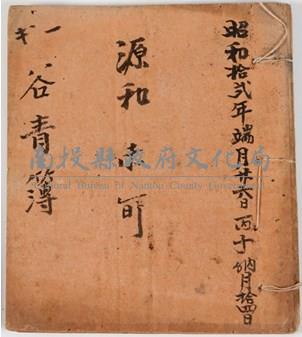 昭和拾弍年端月廿六日丙子納月拾四日
源和
一
谷青簿
南投縣政府文化局
Cultural Bureau of Nantou County Government